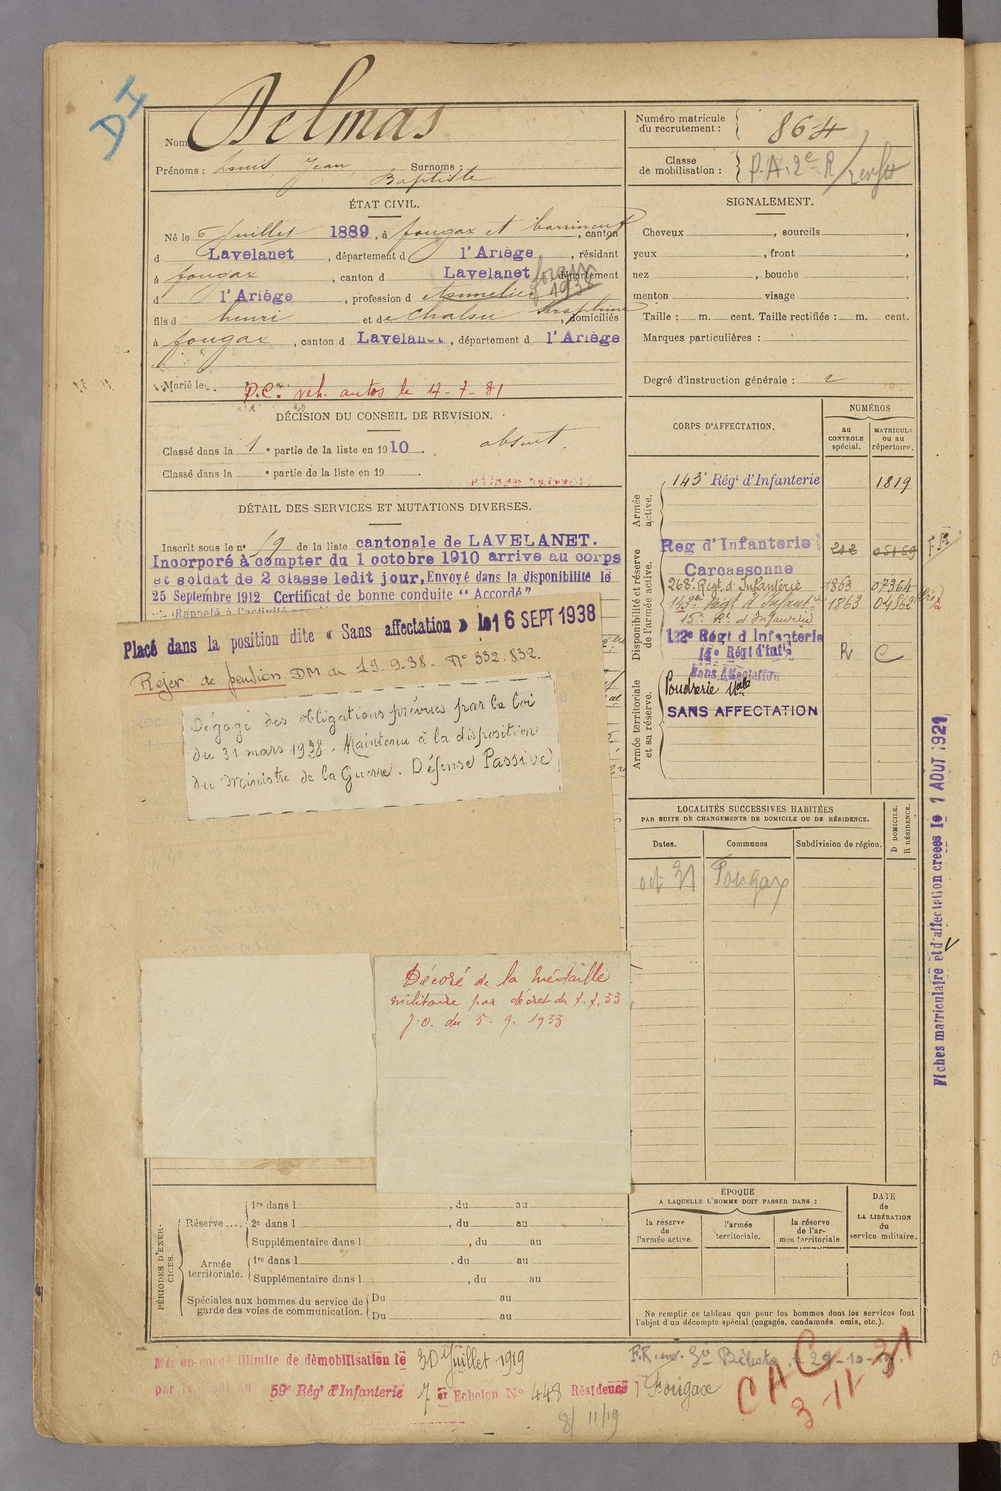 DI
Nom Delmas
Prénoms : Louis, Jean Surnoms :
Baptiste
ÉTAT CIVIL.
Né le 6 juillet 1889, à fougax et barrineuf, canton
d Lavelanet, département d l'Ariège, résidant
à fougax, canton d Lavelanet, département
d l'Ariège, profession d
1938
fils d henri et de domiciliés
à fougax, canton d Lavelanet, département d l'Ariège
Marié le
P.C. veh. autos le 4-7-31
DÉCISION DU CONSEIL DE REVISION.
Classé dans la 1e partie de la liste en 1910 absent.
Classé dans la e partie de la liste en 19
DÉTAIL DES SERVICES ET MUTATIONS DIVERSES.
Inscrit sous le n° 19 de la liste cantonale de LAVELANET.
Incorporé à compter du 1 octobre 1910 arrive au corps
et soldat de 2 classe ledit jour, Envoyé dans la disponibilité le
25 Septembre 1912 Certificat de bonne conduite "Accordé"
Rappelé à l'activité
Placé dans la position dite « Sans affectation » le 16 SEPT 1938
Rejet de pension DM du 19.9.38. N° 332.832.
Dégagé des obligations prévues par la loi
du 31 mars 1928. Maintenu à la disposition
du Ministre de la Guerre. Défense Passive
Décoré de la Médaille
militaire par décret du
J.O. du 5.9.1933
PÉRIODES D'EXERCICES.
Réserve....
1re dans l , du au
2e dans l , du au
Supplémentaire dans l , du au
Armée territoriale.
1re dans l , du au
Supplémentaire dans l , du au
Spéciales aux hommes du service de
garde des voies de communication.
Du au
Du au
Mis en congé illimité de démobilisation le 30 Juillet 1919
par le dépôt du 59e Régt d'Infanterie 7 Echelon N° 448 Résidence Fougax
8/11/19
Numéro matricule
du recrutement : 864
Classe
de mobilisation : P.A. 2e R
SIGNALEMENT.
Cheveux , sourcils ,
yeux , front ,
nez , bouche ,
menton visage
Taille : m. cent. Taille rectifiée : m. cent.
Marques particulières :
Degré d'instruction générale : 2
CORPS D'AFFECTATION.
NUMÉROS
au CONTROLE spécial.
MATRICULE ou au répertoire.
Armée active.
143e Régt d'Infanterie 1819
Disponibilité et réserve
de l'armée active.
Reg d'Infanterie
Carcassonne
268e Régt d'Infanterie 1863 07364
143e Régt d'Infantie 1863 04862
15e Rt d'Infanterie
122e Régt d'Infanterie
15e Régt d'Infie R C
Sans Affectation
Armée territoriale
et sa réserve.
Poudrerie Nale
SANS AFFECTATION
LOCALITÉS SUCCESSIVES HABITÉES
PAR SUITE DE CHANGEMENTS DE DOMICILE OU DE RÉSIDENCE.
Dates. Communes Subdivision de région. D DOMICILE. R RÉSIDENCE.
oct 31 Fougax
Fiches matriculaire et d'affectation créées le 1 AOUT 1921
ÉPOQUE
A LAQUELLE L'HOMME DOIT PASSER DANS :
la réserve de l'armée active.
l'armée territoriale.
la réserve de l'armée territoriale
DATE
de
LA LIBÉRATION
du
service militaire.
Ne remplir ce tableau que pour les hommes dont les services font
l'objet d'un décompte spécial (engagés, condamnés, omis, etc.).
CAC
3-11-31